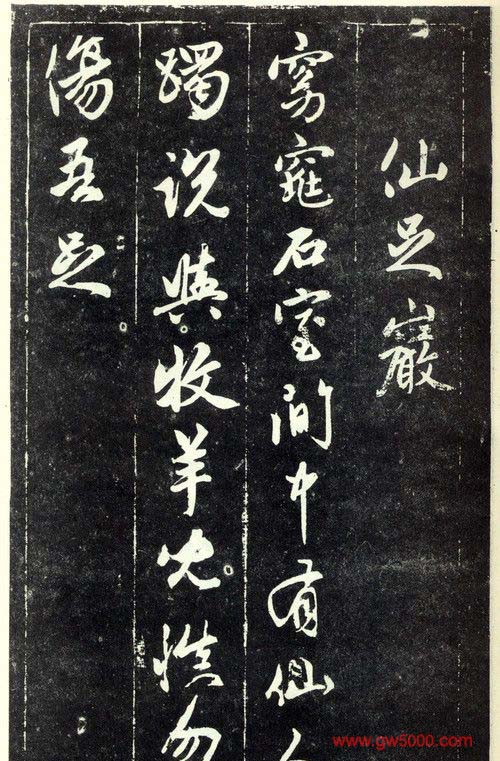 仙足巖
窈窕石室間中有仙人
躅説與牧羊兒慎勿
傷吾足
www.gw5000.com